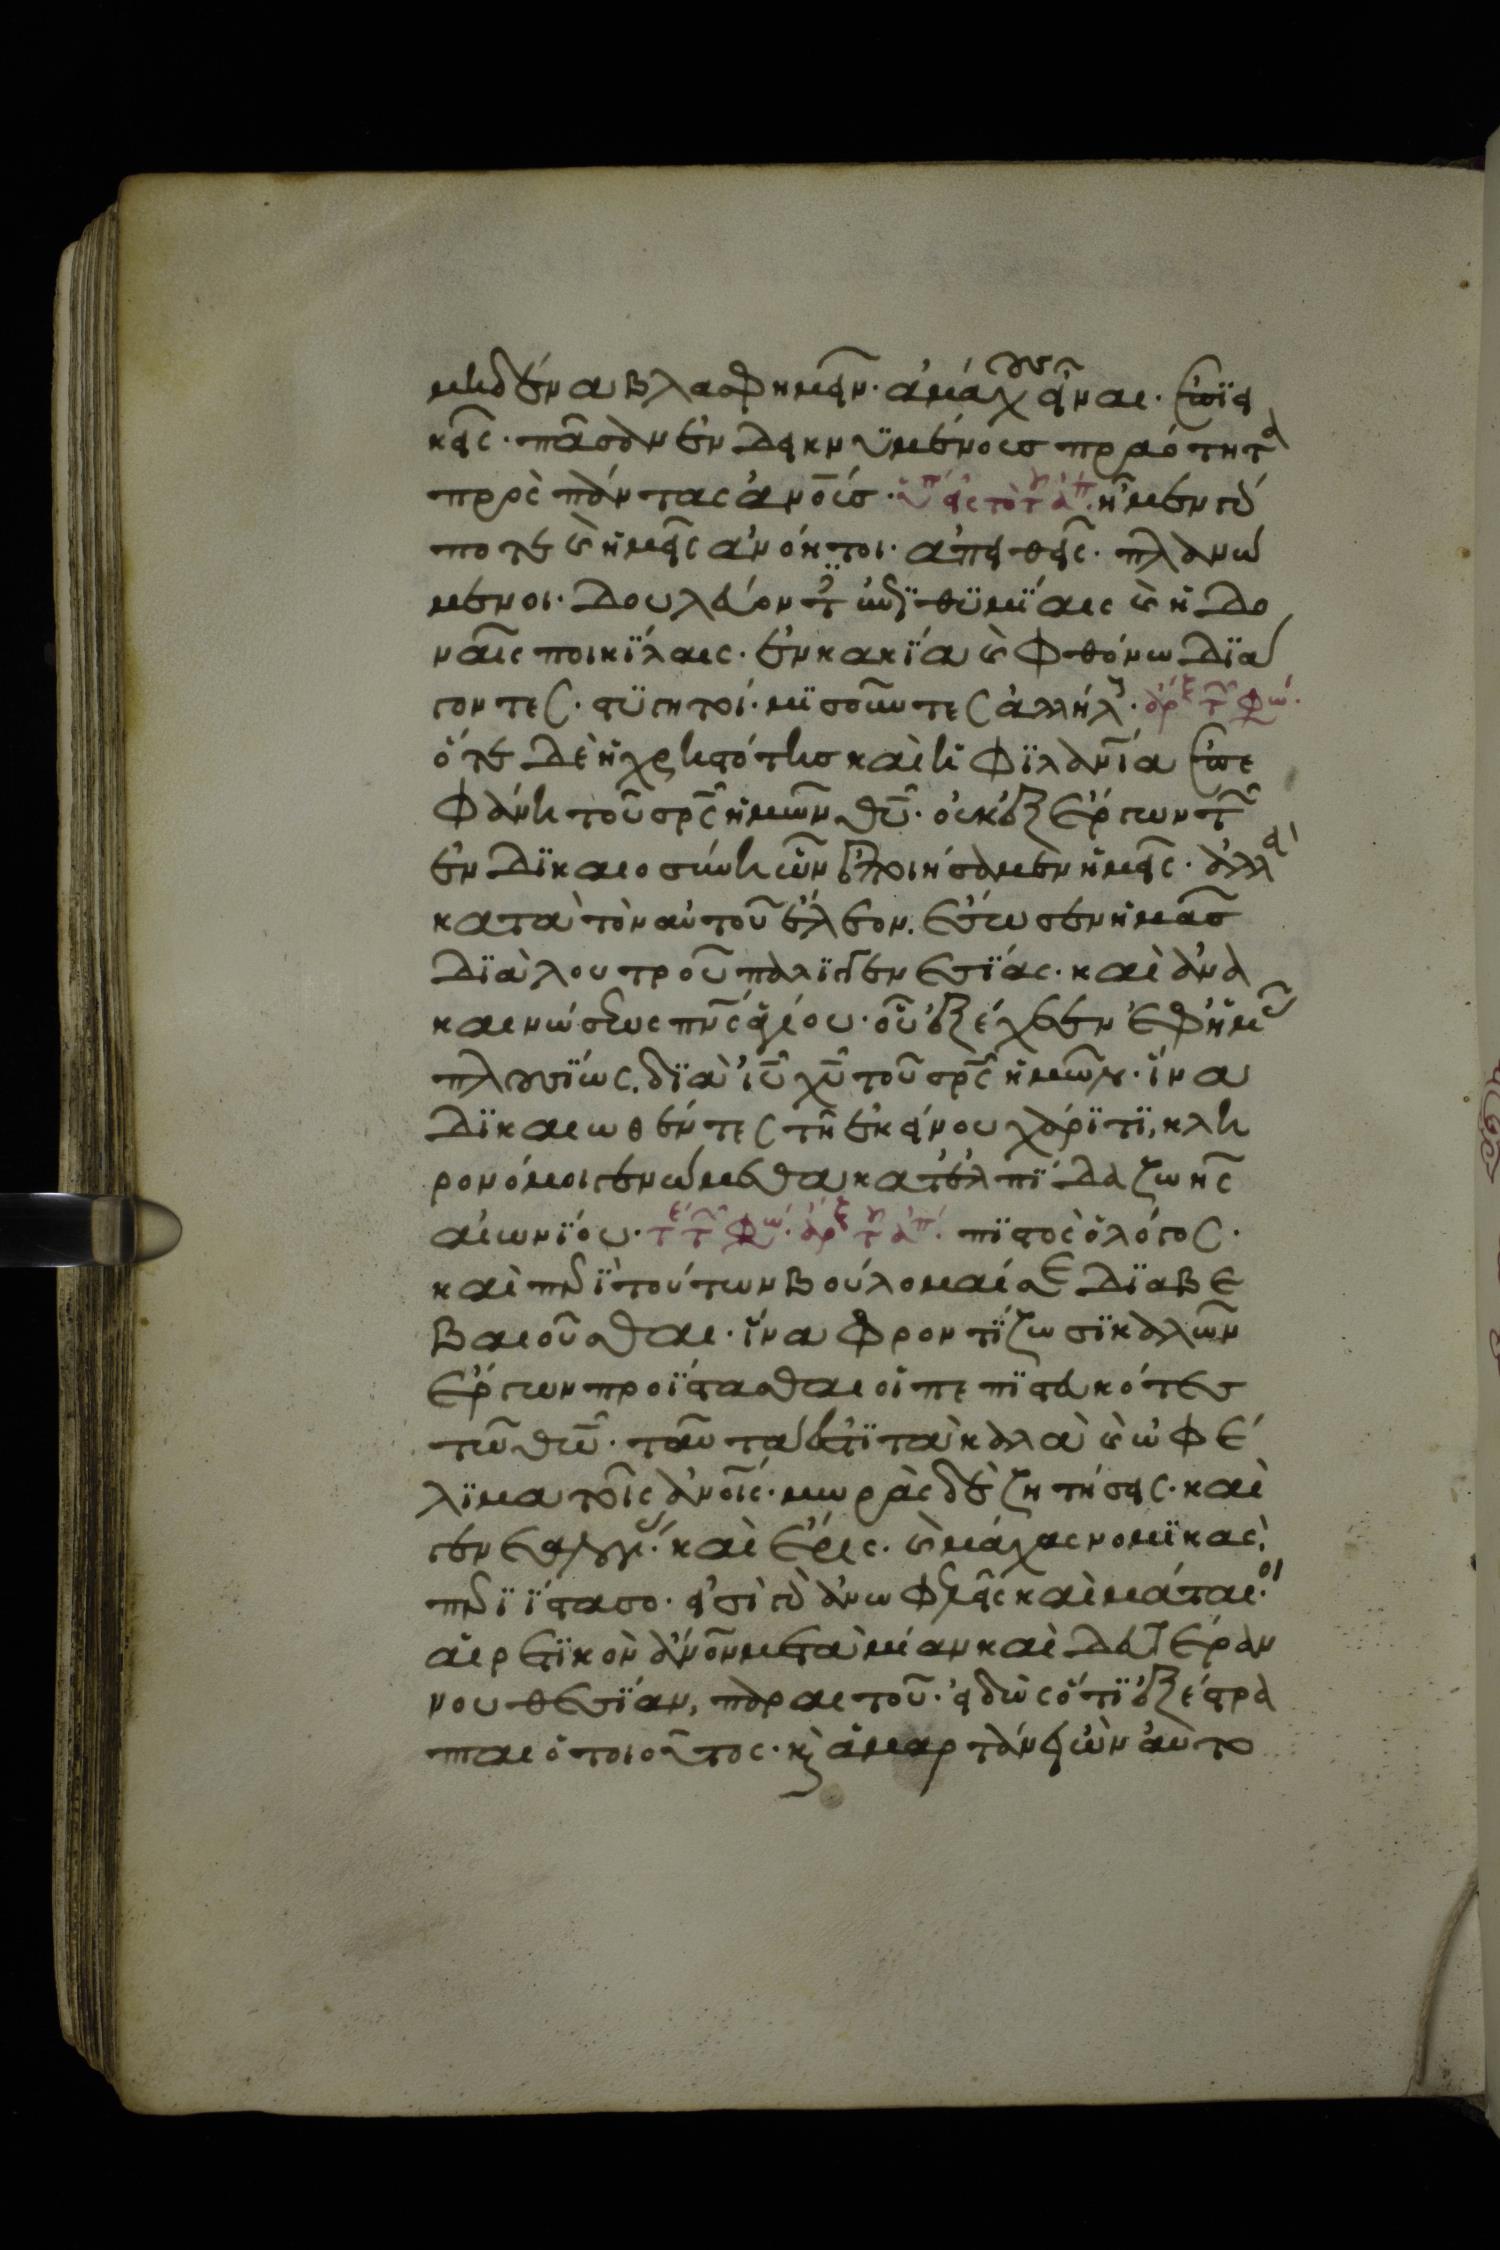 μηδένα βλασφημεῖν· ἀμάχους εἶναι· ἐπϊει
κεῖς· πᾶσαν ἐνδεικνϋμένοισ πραότητα
πρὸς πάντας ἀνοῖς· ἦμεν γάρ
ποτε καὶ ἡμεῖς ἀνόητοι· ἀπειθεῖς· πλανώ
μενοι· δουλεύοντες ἐπϊθϋμΐαις καὶ ἡδο
ναῖς ποικΐλαις· ἐν κακΐα καὶ φθόνω δϊά
γοντες· στϋγητοί· μϊσοῦντες ἀλλήλους·
ὅτε δὲ ἡ χρηστότησ καὶ ἡ φϊλανΐα ἐπε
φάνη τοῦ σρς ἡμῶν θυ· οὐκ ἐξ ἔργων τῶν
ἐν δϊκαιοσύνη ὧν ἐποιήσαμεν ἡμεῖς· ἀλλὰ
κατὰ τὸν αὐτοῦ ἔλεον. ἔσωσεν ἡμᾶσ
δϊὰ λουτροῦ παλϊγγενεσΐας· καὶ ἀνα
καινώσεως πνς ἁγίου· οὗ ἐξέχεεν ἐφ ἡμᾶς
πλουσΐως. δϊὰ ιυ χυ τοῦ σρς ἡμῶν· ἵνα
δϊκαιωθέντες τῆ ἐκείνου χάρϊτϊ, κλη
ρονόμοι γενώμεθα κατ ἐλπΐδα ζωῆς
αἰωνΐου· πϊστὸς ὁ λόγος·
καὶ περϊ τούτων βούλομαί σε δϊαβε
βαιοῦσθαι· ἵνα φροντΐζωσϊ καλῶν
ἔργων προΐστασθαι οἱ πεπϊστευκότεσ
τῶ θω· ταῦτά ἐστϊ τὰ καλὰ καὶ ὠφέ
λϊμα τοῖς ἀνοις· μωρὰς δὲ ζητήσεις· καὶ
γενεαλογίας· καὶ ἔρεις· καὶ μάχας νομϊκας,
περϊΐστασο· εἰσὶ γὰρ ἀνωφελεῖς καὶ μάταιοι·
αἱρετϊκὸν ἀνον μετὰ μίαν καὶ δευτέραν
νουθεσΐαν, παραιτοῦ· εἰδὼς ὅτϊ ἐξέστρα
πται ὁ τοιοῦτος· καὶ ἁμαρτάνει ὢν αὐτο